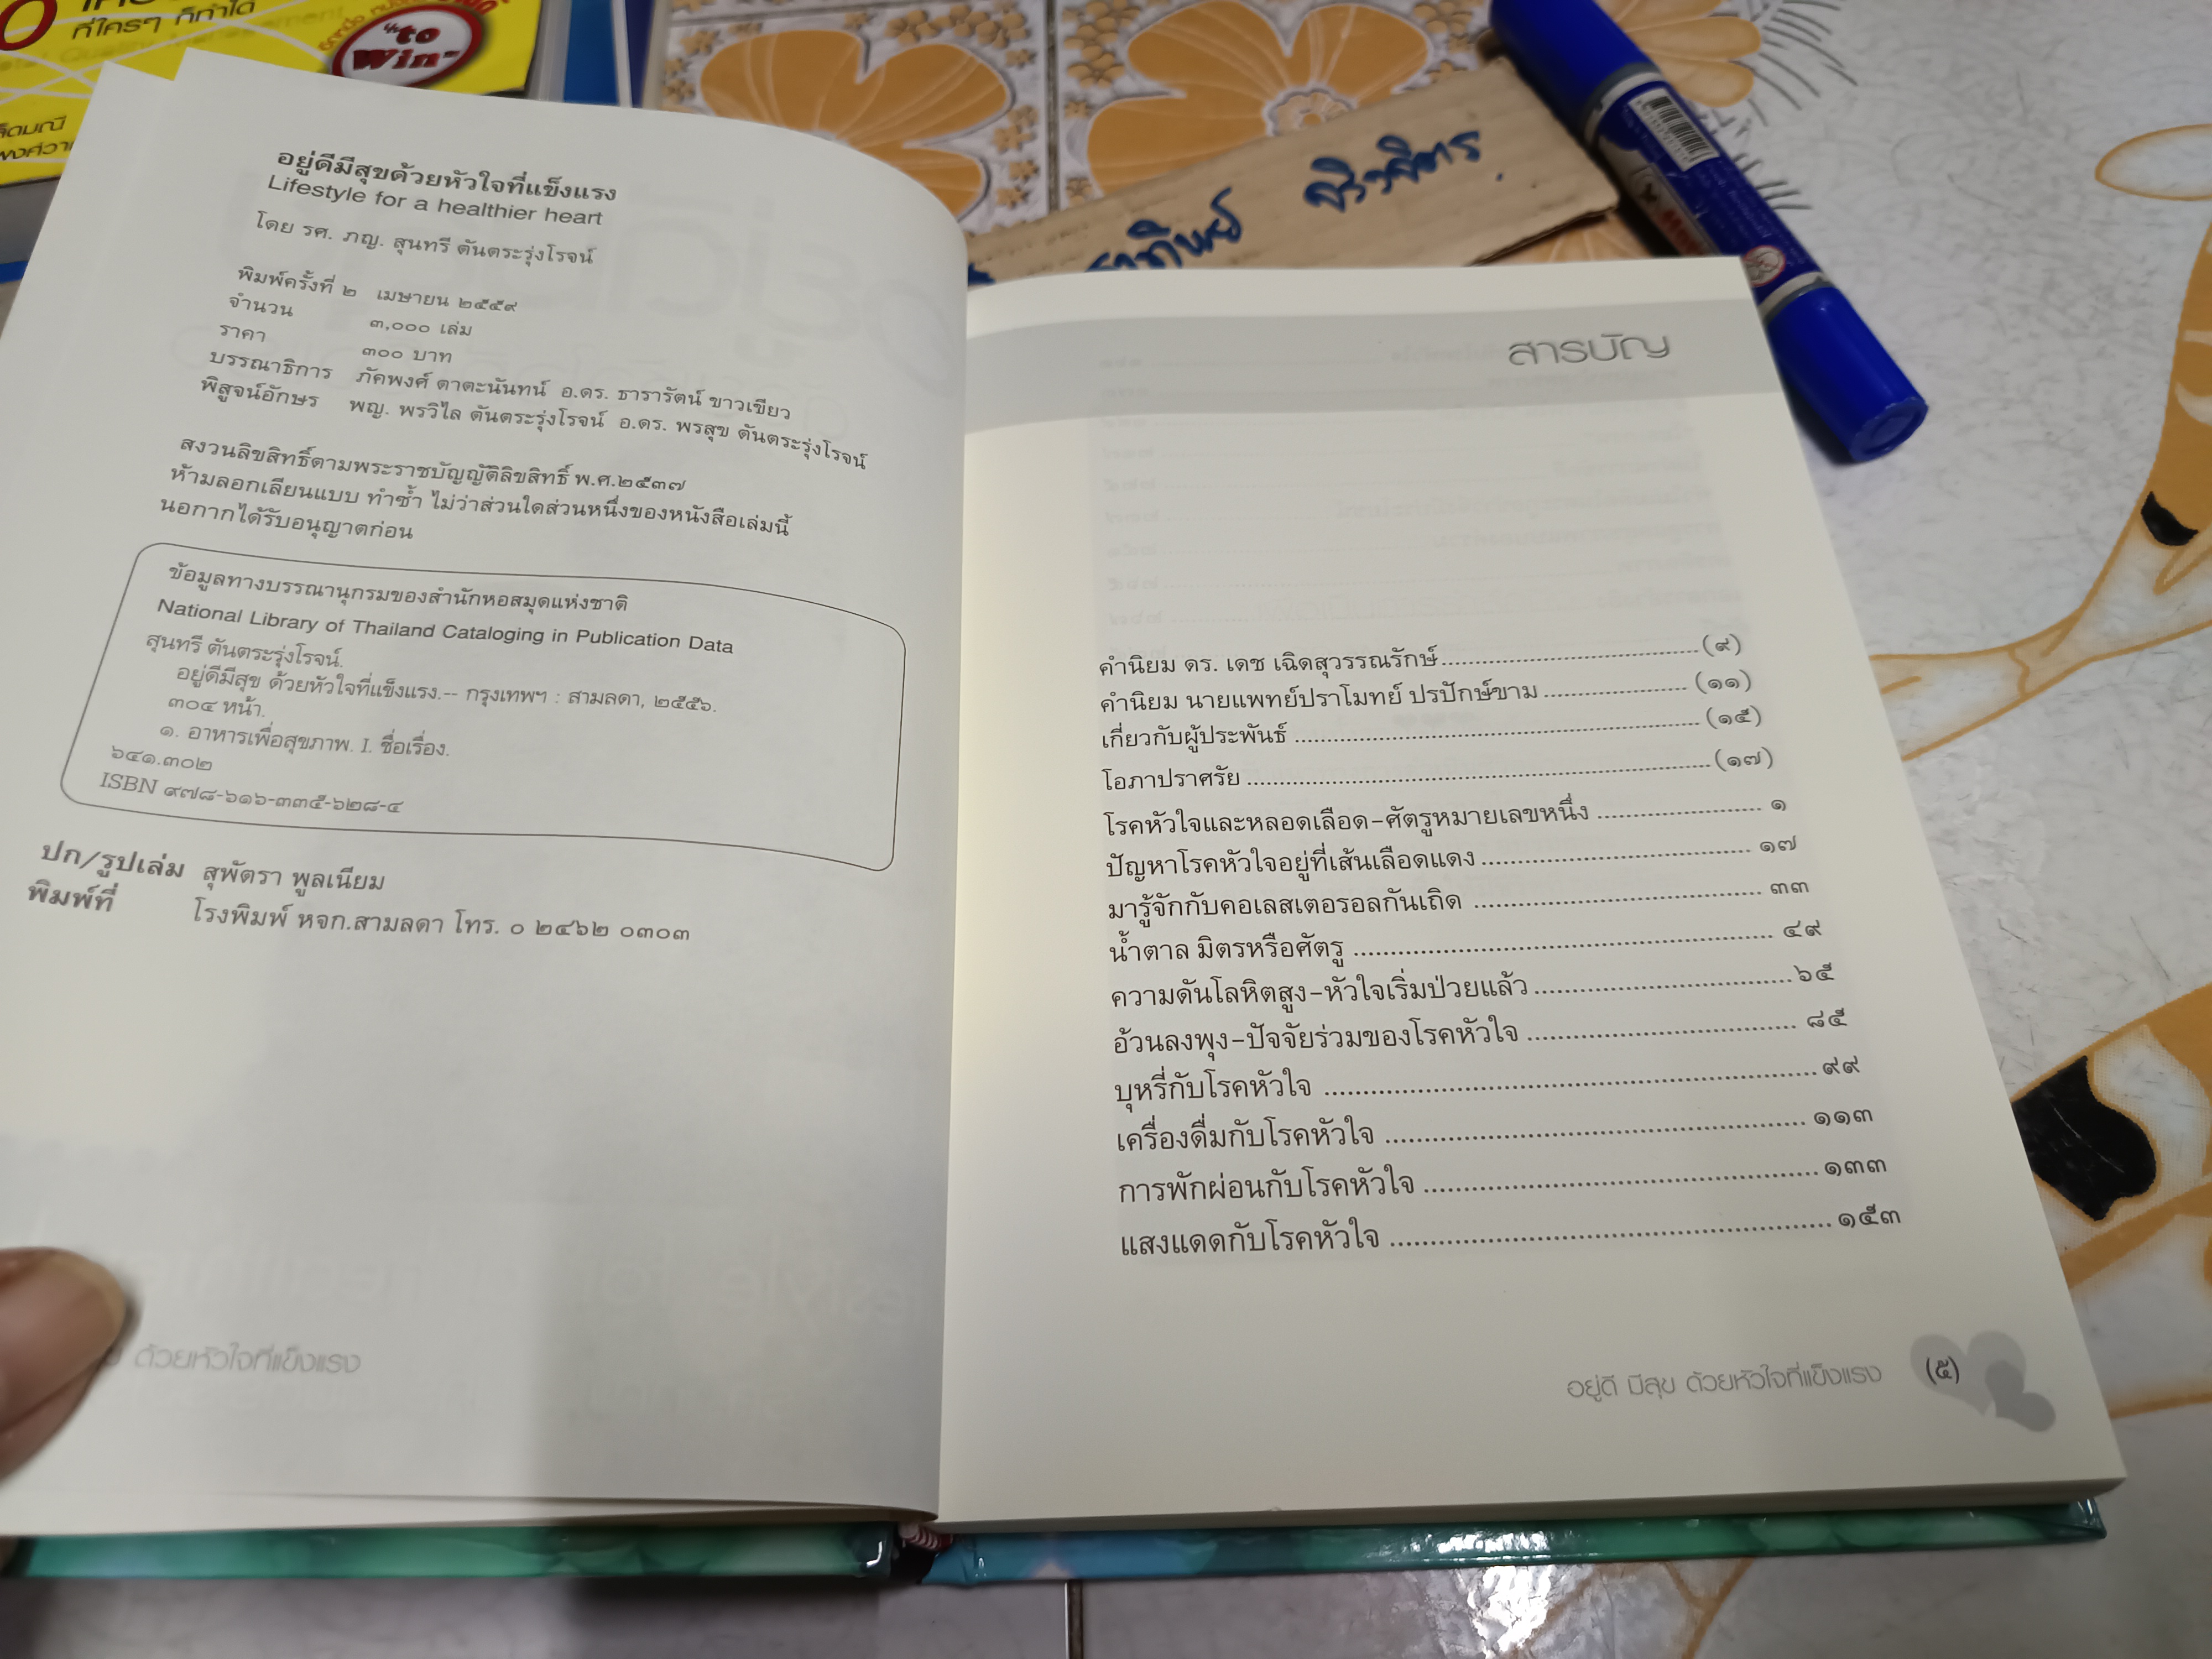 ที่ใครๆ ก็ทำได้
"to
Win"
อยู่ดีมีสุขด้วยหัวใจที่แข็งแรง
Lifestyle for a healthier heart
โดย รศ. ภญ. สุนทรี ตันตระรุ่งโรจน์
พิมพ์ครั้งที่ ๒ เมษายน ๒๕๕๙
จำนวน ๓,๐๐๐ เล่ม
ราคา ๓๐๐ บาท
บรรณาธิการ ภัคพงศ์ ตาตะนันทน์ อ.ดร. ธารารัตน์ ขาวเขียว
พิสูจน์อักษร พญ. พรวิไล ตันตระรุ่งโรจน์ อ.ดร. พรสุข ตันตระรุ่งโรจน์
สงวนลิขสิทธิ์ตามพระราชบัญญัติลิขสิทธิ์ พ.ศ.๒๕๓๗
ห้ามลอกเลียนแบบ ทำซ้ำ ไม่ว่าส่วนใดส่วนหนึ่งของหนังสือเล่มนี้
นอกากได้รับอนุญาตก่อน
ข้อมูลทางบรรณานุกรมของสำนักหอสมุดแห่งชาติ
National Library of Thailand Cataloging in Publication Data
สุนทรี ตันตระรุ่งโรจน์.
อยู่ดีมีสุข ด้วยหัวใจที่แข็งแรง.-- กรุงเทพฯ : สามลดา, ๒๕๕๖.
๓๐๔ หน้า.
๑. อาหารเพื่อสุขภาพ. I. ชื่อเรื่อง.
๖๔๑.๓๐๒
ISBN ๙๗๘-๖๑๖-๓๓๕-๖๒๘-๔
ปก/รูปเล่ม สุพัตรา พูลเนียม
พิมพ์ที่ โรงพิมพ์ หจก.สามลดา โทร. ๐ ๒๔๖๒ ๐๓๐๓
ด้วยหัวใจที่แข็งแรง
สารบัญ
คำนิยม ดร. เดช เฉิดสุวรรณรักษ์ (๙)
คำนิยม นายแพทย์ปราโมทย์ ปรปักษ์ขาม (๑๑)
เกี่ยวกับผู้ประพันธ์ (๑๕)
โอภาปราศรัย (๑๗)
โรคหัวใจและหลอดเลือด-ศัตรูหมายเลขหนึ่ง ๑
ปัญหาโรคหัวใจอยู่ที่เส้นเลือดแดง ๑๗
มารู้จักกับคอเลสเตอรอลกันเถิด ๓๓
น้ำตาล มิตรหรือศัตรู ๔๙
ความดันโลหิตสูง-หัวใจเริ่มป่วยแล้ว ๖๕
อ้วนลงพุง-ปัจจัยร่วมของโรคหัวใจ ๘๕
บุหรี่กับโรคหัวใจ ๙๙
เครื่องดื่มกับโรคหัวใจ ๑๑๓
การพักผ่อนกับโรคหัวใจ ๑๓๓
แสงแดดกับโรคหัวใจ ๑๕๓
อยู่ดี มีสุข ด้วยหัวใจที่แข็งแรง (๕)